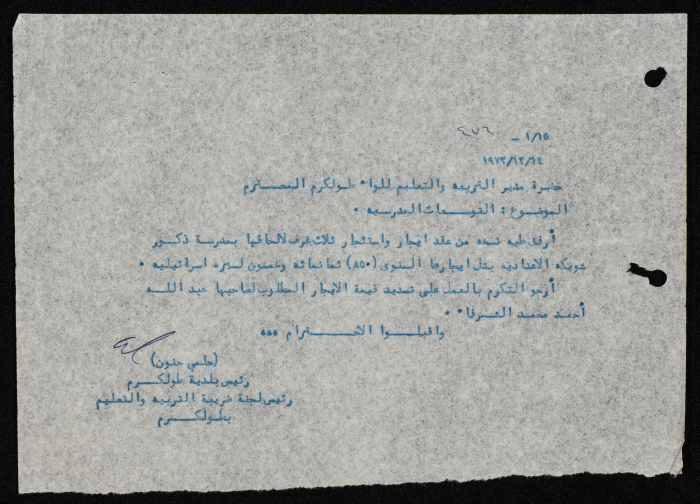 ١/١٥ – ٤٧٦
١٩٧٣/١٢/١٤
حضرة مدير التربيه والتعليم للواء طولكرم المحـــترم
الموضوع : التوسعات المدرسيه ٠
أرفق طيه نسخه من عقد ايجار واستئجار ثلاث غرف لالحاقها بمدرسة ذكور
شويكه الاعداديه بدل ايجارها السنوى (٨٥٠) ثمانمائه وخمسون ليره اسرائيليه ٠
أرجو التكرم بالعمل على تسديد قيمة الايجار المطلوب لصاحبها عبد اللـــه
أحمد محمد الشـرفاء ٠
واقبلـــوا الاحـــترام ٥٥٥
(حلمي حنون)
رئيس بلدية طولكـــرم
رئيس لجنة ضريبة التربيه والتعليم
بطـولكـــــرم